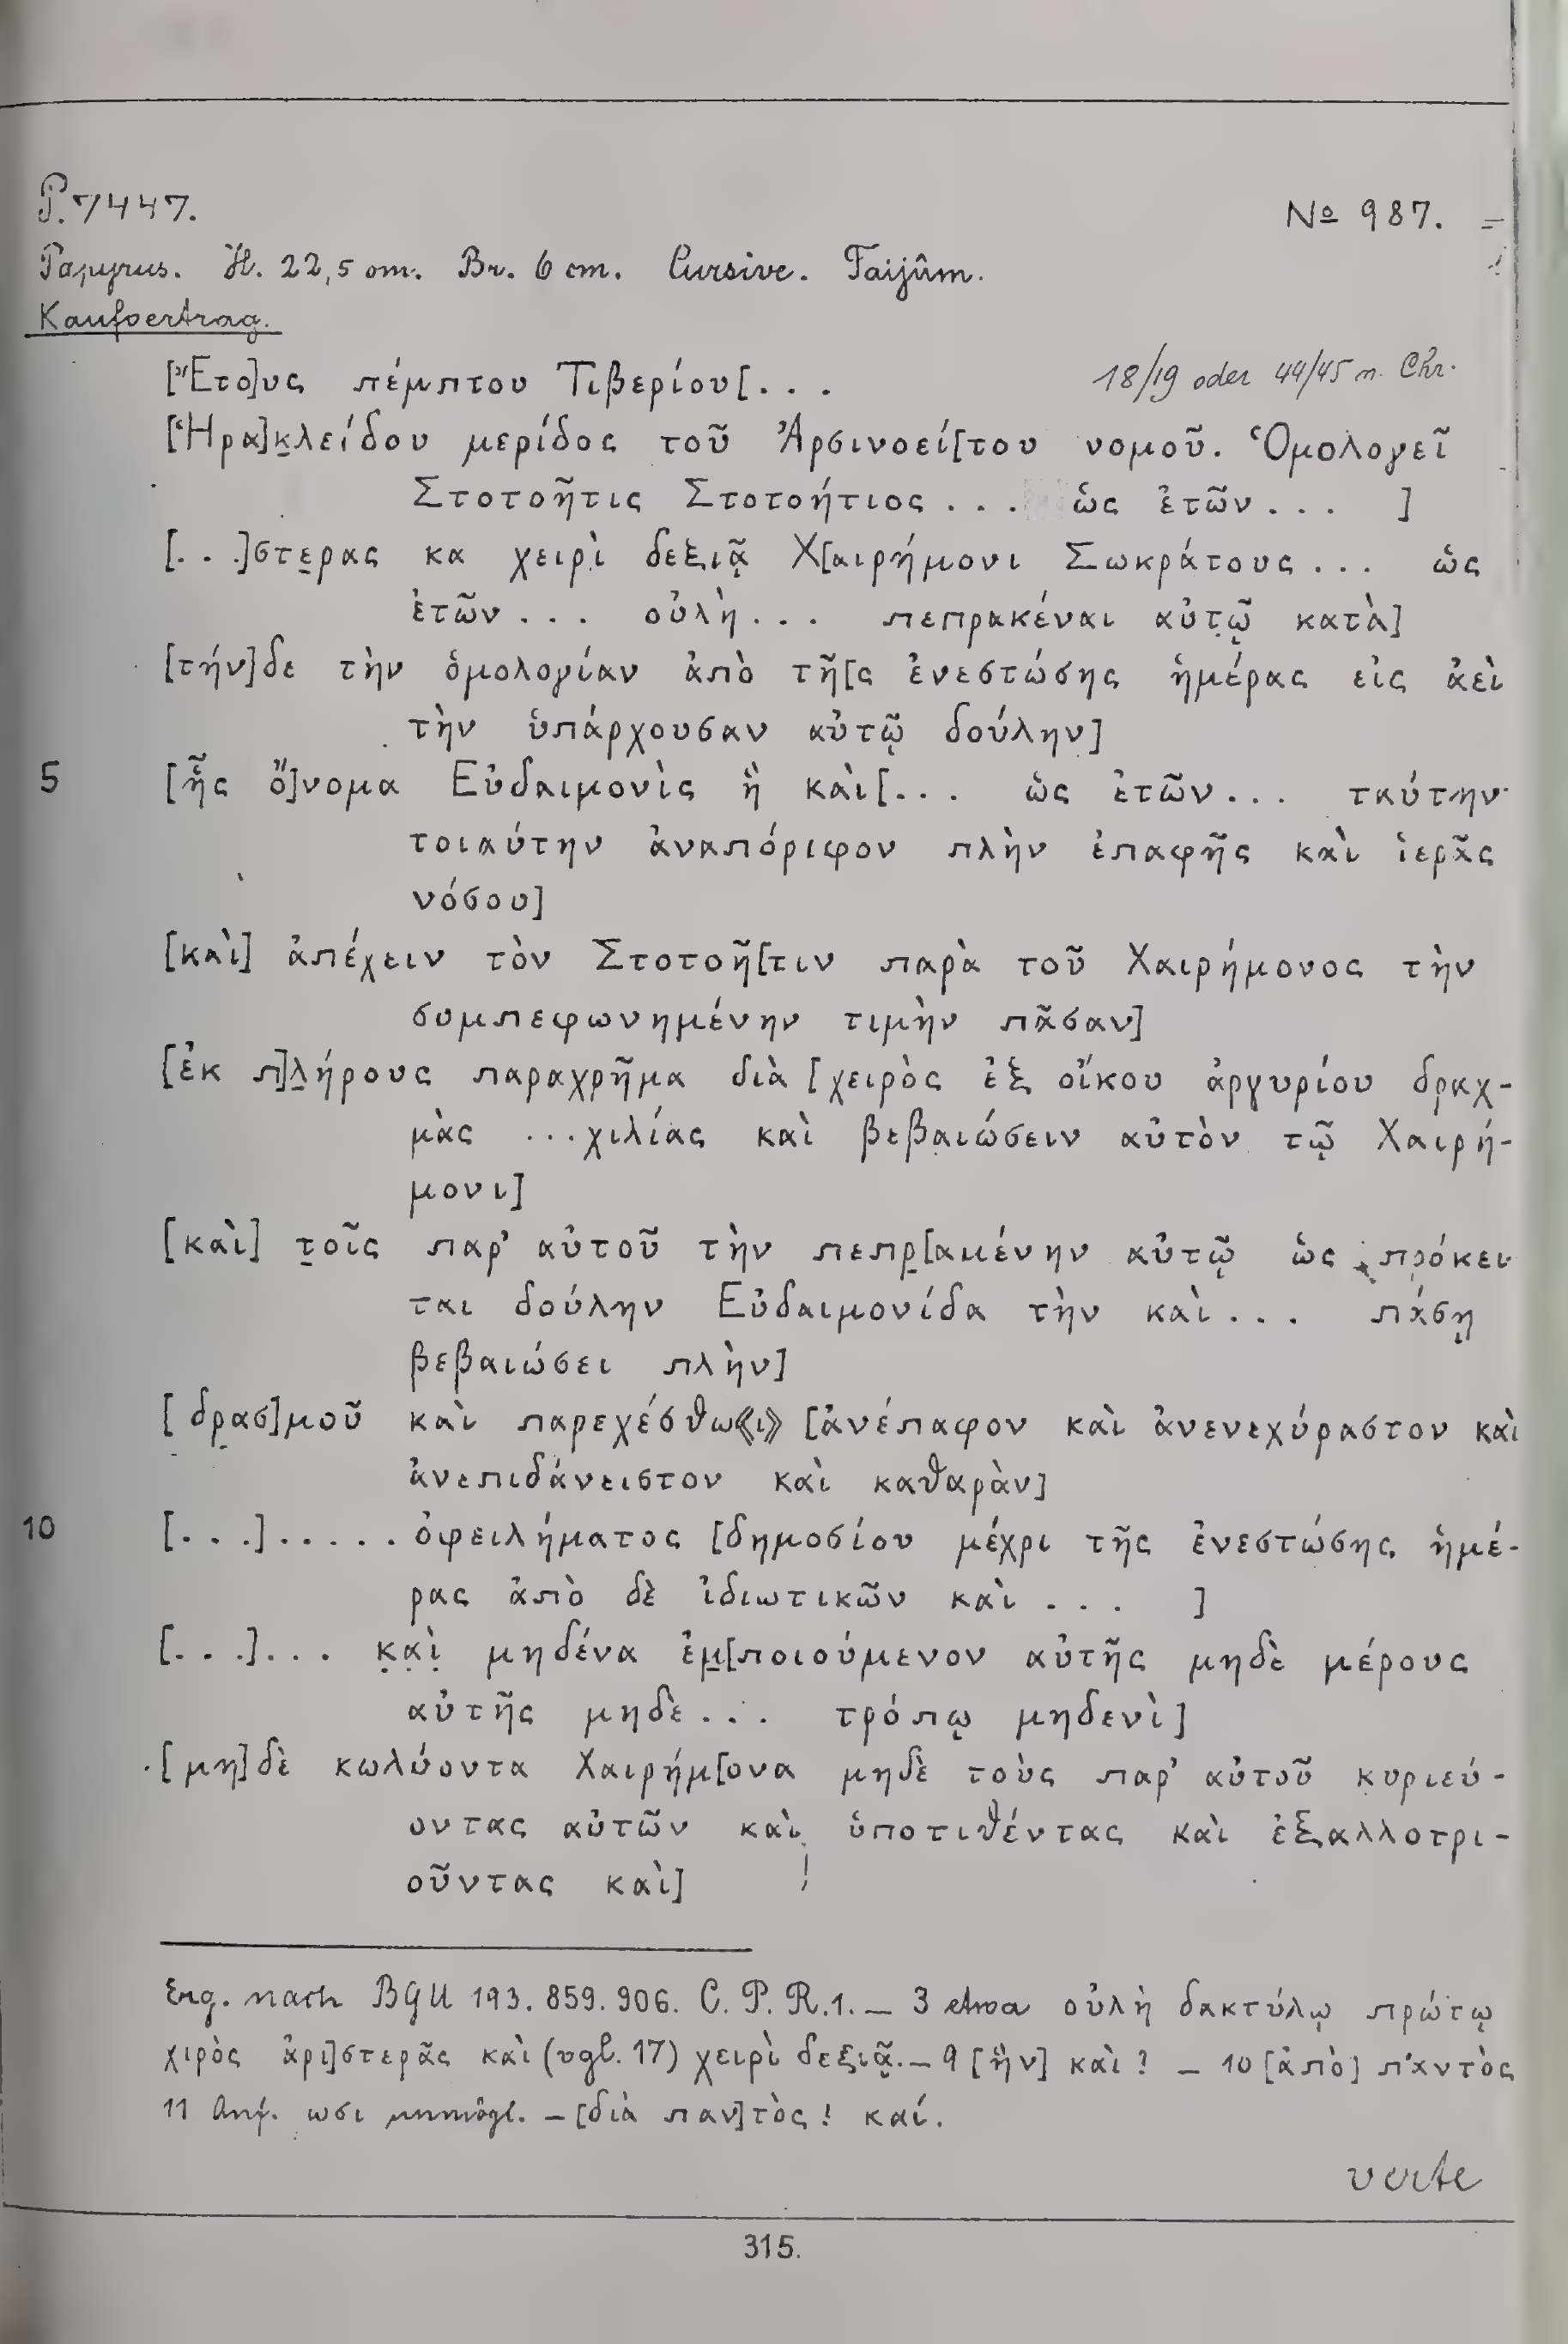 P. 7447. No 987.
Papyrus. H. 22,5 cm. Br. 6 cm. Cursive. Faijûm.
Kaufvertrag.
[Ἔτο]υς πέμπτου Τιβερίου[... 18/19 oder 44/45 n. Chr.
[Ἡρα]κ̣λείδου μερίδος τοῦ Ἀρσινοεί[του νομοῦ. Ὁμολογεῖ
Στοτοῆτις Στοτοήτιος ... ὡς ἐτῶν ... ]
[...]στε̣ρας κα χειρὶ δεξιᾷ Χ[αιρήμονι Σωκράτους ... ὡς
ἐτῶν ... οὐλὴ ... πεπρακέναι αὐτῷ κατὰ]
[τήν]δε τὴν ὁμολογίαν ἀπὸ τῆ[ς ἐνεστώσης ἡμέρας εἰς ἀεὶ
τὴν ὑπάρχουσαν αὐτῷ δούλην]
5 [ἧς ὄ]νομα Εὐδαιμονὶς ἣ καὶ[... ὡς ἐτῶν ... ταύτην
τοιαύτην ἀναπόριφον πλὴν ἐπαφῆς καὶ ἱερᾶς
νόσου]
[καὶ] ἀπέχειν τὸν Στοτοῆ[τιν παρὰ τοῦ Χαιρήμονος τὴν
συμπεφωνημένην τιμὴν πᾶσαν]
[ἐκ π]λ̣ήρους παραχρῆμα διὰ [χειρὸς ἐξ οἴκου ἀργυρίου δραχ-
μὰς ...χιλίας καὶ βεβαιώσειν αὐτὸν τῷ Χαιρή-
μονι]
[καὶ] τ̣οῖς παρ' αὐτοῦ τὴν πεπρ̣[αμένην αὐτῷ ὡς πρόκει
ται δούλην Εὐδαιμονίδα τὴν καὶ ... πάσῃ
βεβαιώσει πλὴν]
[δρασ]μοῦ καὶ παρεχέσθω⟪ι⟫ [ἀνέπαφον καὶ ἀνενεχύραστον καὶ
ἀνεπιδάνειστον καὶ καθαρὰν]
10 [...]..... ὀφειλήματος [δημοσίου μέχρι τῆς ἐνεστώσης ἡμέ-
ρας ἀπὸ δὲ ἰδιωτικῶν καὶ ... ]
[...]... κ̣α̣ὶ̣ μηδένα ἐμ̣[ποιούμενον αὐτῆς μηδὲ μέρους
αὐτῆς μηδὲ ... τρόπῳ μηδενὶ]
[μη]δὲ κωλύοντα Χαιρήμ[ονα μηδὲ τοὺς παρ' αὐτοῦ κυριεύ-
οντας αὐτῶν καὶ ὑποτιθέντας καὶ ἐξαλλοτρι-
οῦντας καὶ]
Erg. nach BGU 193. 859. 906. C. P. R. 1. — 3 etwa οὐλὴ δακτύλῳ πρώτῳ
χιρὸς ἀρι]στερᾶς καὶ (vgl. 17) χειρὶ δεξιᾷ. — 9 [ἣν] καὶ? — 10 [ἀπὸ] παντὸς
11 Anf. ωσι unmögl. — [διὰ παν]τὸς? καί.
verte
315.